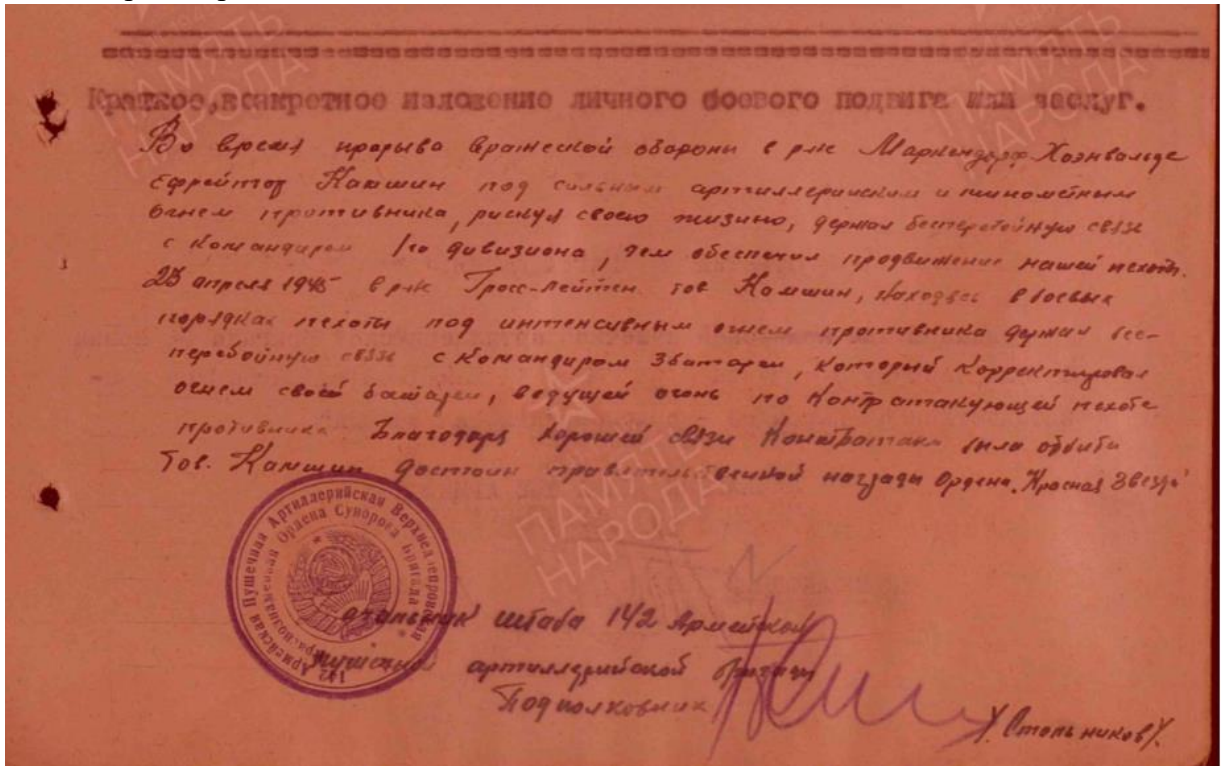 Краткое, конкретное изложение личного боевого подвига или заслуг.
Во время прорыва вражеской обороны в р-не Маркендорф-Хоэнвальде
ефрейтор Камшин под сильным артиллерийским и минометным
огнем противника, рискуя своею жизнью, держал бесперебойную связь
с командиром 1го дивизиона, чем обеспечил продвижение нашей пехоты.
25 апреля 1945 в р-не Гросс-Лейтен тов Камшин, находясь в боевых
порядках пехоты под интенсивным огнем противника держал бес-
перебойную связь с командиром 3 батареи, который корректировал
огнем своей батареи, ведущей огонь по контратакующей пехоте
противника. Благодаря хорошей связи контратака была отбита
Тов. Камшин достоин правительственной награды Ордена "Красная Звезда"
142 Армейская Пушечная Артиллерийская Верхнеднепровская
Краснознаменная Ордена Суворова Бригада
Начальник штаба 142 Армейской
пушечной артиллерийской бригады
Подполковник
/Стольников/.
ПАМЯТЬ
НАРОДА
ПАМЯТЬ
НАРОДА
ПАМЯТЬ
НАРОДА